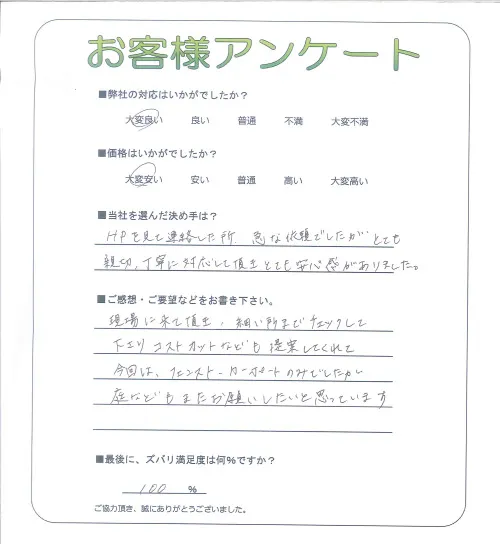 お客様アンケート
■弊社の対応はいかがでしたか？
大変良い 良い 普通 不満 大変不満
■価格はいかがでしたか？
大変安い 安い 普通 高い 大変高い
■当社を選んだ決め手は？
HPを見て連絡した所、急な依頼でしたが とても
親切、丁寧に対応して頂きとても安心感がありました。
■ご感想・ご要望などをお書き下さい。
現場に来て頂き、細い所までチェックして
下さり コストカットなども提案してくれて
今回は、フェンスト・カーポートのみでしたが
庭などもまたお願いしたいと思っています
■最後に、ズバリ満足度は何％ですか？
100 %
ご協力頂き、誠にありがとうございました。